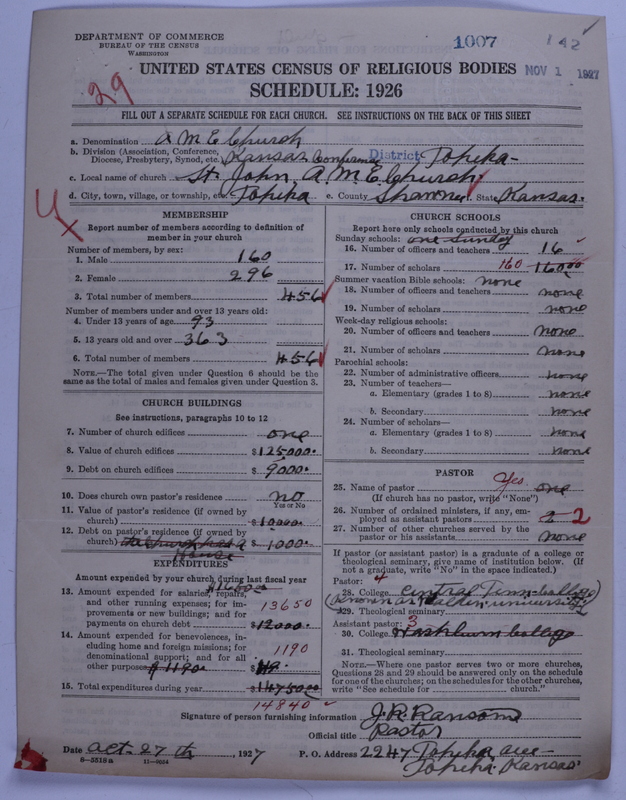 DEPARTMENT OF COMMERCE
BUREAU OF THE CENSUS
WASHINGTON
1007
142
UNITED STATES CENSUS OF RELIGIOUS BODIES
NOV 1 1927
SCHEDULE: 1926
29
FILL OUT A SEPARATE SCHEDULE FOR EACH CHURCH. SEE INSTRUCTIONS ON THE BACK OF THIS SHEET
a. Denomination A M E Church
b. Division (Association, Conference, Diocese, Presbytery, Synod, etc.) Kansas Conference District Topeka-
c. Local name of church St. John A. M. E. Church.
d. City, town, village, or township, etc. Topeka e. County Shawnee f. State Kansas.
MEMBERSHIP
Report number of members according to definition of
member in your church
Number of members, by sex:
1. Male 160
2. Female 296
3. Total number of members 456
Number of members under and over 13 years old:
4. Under 13 years of age 93
5. 13 years old and over 363
6. Total number of members 456
NOTE.—The total given under Question 6 should be the
same as the total of males and females given under Question 3.
CHURCH BUILDINGS
See instructions, paragraphs 10 to 12
7. Number of church edifices one
8. Value of church edifices $125000.
9. Debt on church edifices $9000.
10. Does church own pastor's residence? no
Yes or No
11. Value of pastor's residence (if owned by
church) $10000.
12. Debt on pastor's residence (if owned by
church) $1000.
EXPENDITURES
Amount expended by your church during last fiscal year
13. Amount expended for salaries, repairs,
and other running expenses; for im-
provements or new buildings; and for
payments on church debt 13650 $12000.
14. Amount expended for benevolences, in-
cluding home and foreign missions; for
denominational support; and for all
other purposes $1190 1190
15. Total expenditures during year $14750.00
14840
CHURCH SCHOOLS
Report here only schools conducted by this church
Sunday schools: one Sunday
16. Number of officers and teachers 16
17. Number of scholars 160 160.00
Summer vacation Bible schools: none
18. Number of officers and teachers none
19. Number of scholars none
Week-day religious schools:
20. Number of officers and teachers none
21. Number of scholars none
Parochial schools:
22. Number of administrative officers none
23. Number of teachers—
a. Elementary (grades 1 to 8) none
b. Secondary none
24. Number of scholars—
a. Elementary (grades 1 to 8) none
b. Secondary none
PASTOR
25. Name of pastor Yes one
(If church has no pastor, write "None")
26. Number of ordained ministers, if any, em-
ployed as assistant pastors 2 2
27. Number of other churches served by the
pastor or his assistants none
If pastor (or assistant pastor) is a graduate of a college or
theological seminary, give name of institution below. (If
not a graduate, write "No" in the space indicated.)
Pastor: 4
28. College Central Tenn. College
(known as Walden university)
29. Theological seminary
Assistant pastor: 3
30. College Washburn College
31. Theological seminary
NOTE.—Where one pastor serves two or more churches,
Questions 28 and 29 should be answered only on the schedule
for one of the churches; on the schedules for the other churches,
write "See schedule for church."
Signature of person furnishing information J. R. Ransom
Official title Pastor
Date Oct. 27th, 1927 P. O. Address 2247 Topeka ave
Topeka, Kansas.
8—5518a 11—9054